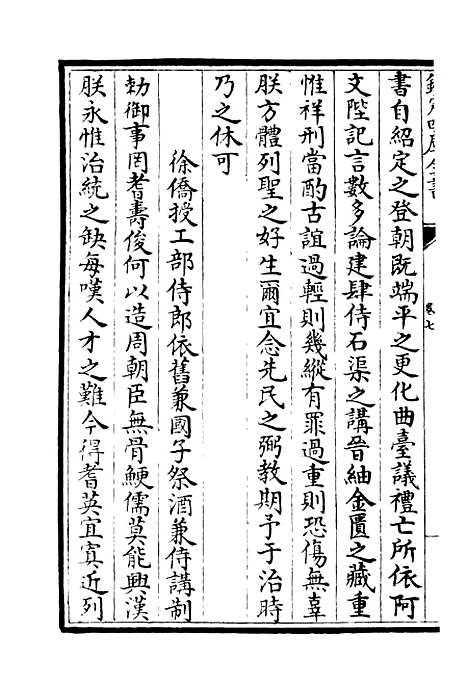 書自紹定之登朝既端平之更化曲臺議禮亡所依阿
文陛記言數多論建肆侍石渠之講晉紬金匱之藏重
惟祥刑當酌古誼過輕則幾縱有罪過重則恐傷無辜
朕方體列聖之好生爾宜念先民之弼教期予于治時
乃之休可
徐僑授工部侍郎依舊兼國子祭酒兼侍講制
勅御事罔耆壽俊何以造周朝臣無骨鯁儒莫能興漢
朕永惟治統之缺每嘆人才之難今得耆英宜寘近列
卷七